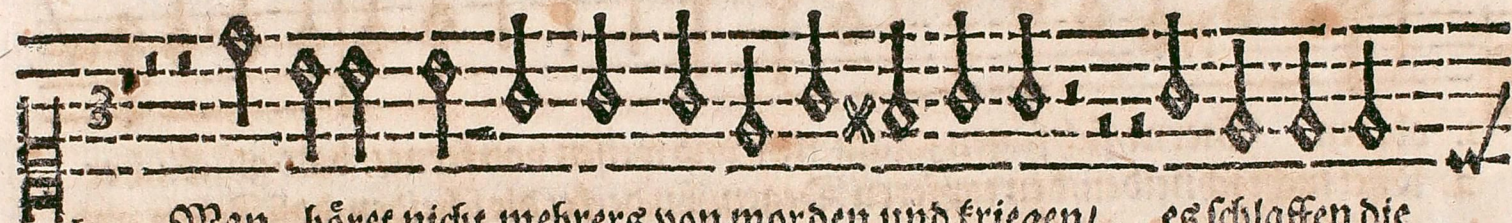 3
Man höret nicht mehrers von morden und kriegen/ es schlaffen die